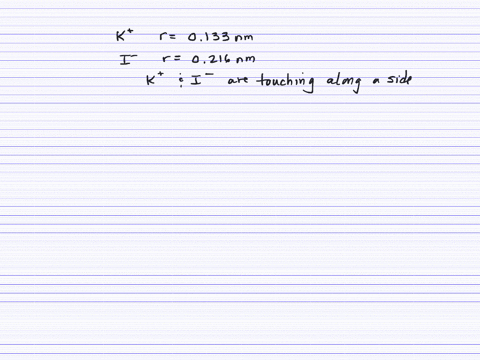 K⁺ r = 0.133 nm
I⁻ r = 0.216 nm
K⁺ & I⁻ are touching along a side